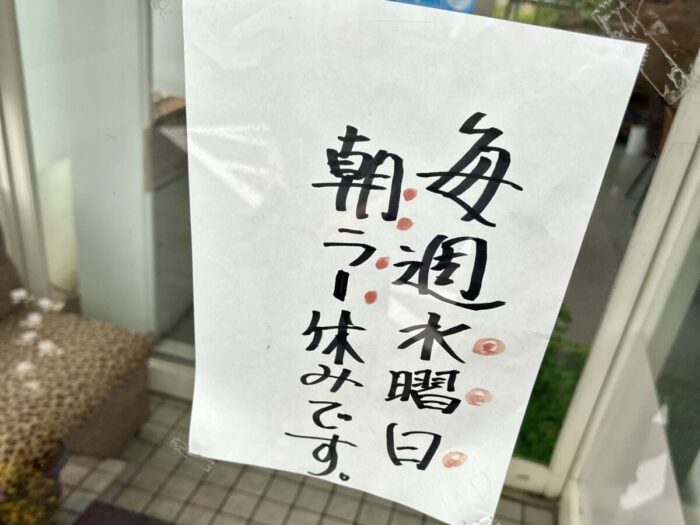 毎週水曜日
朝ラー休みです。